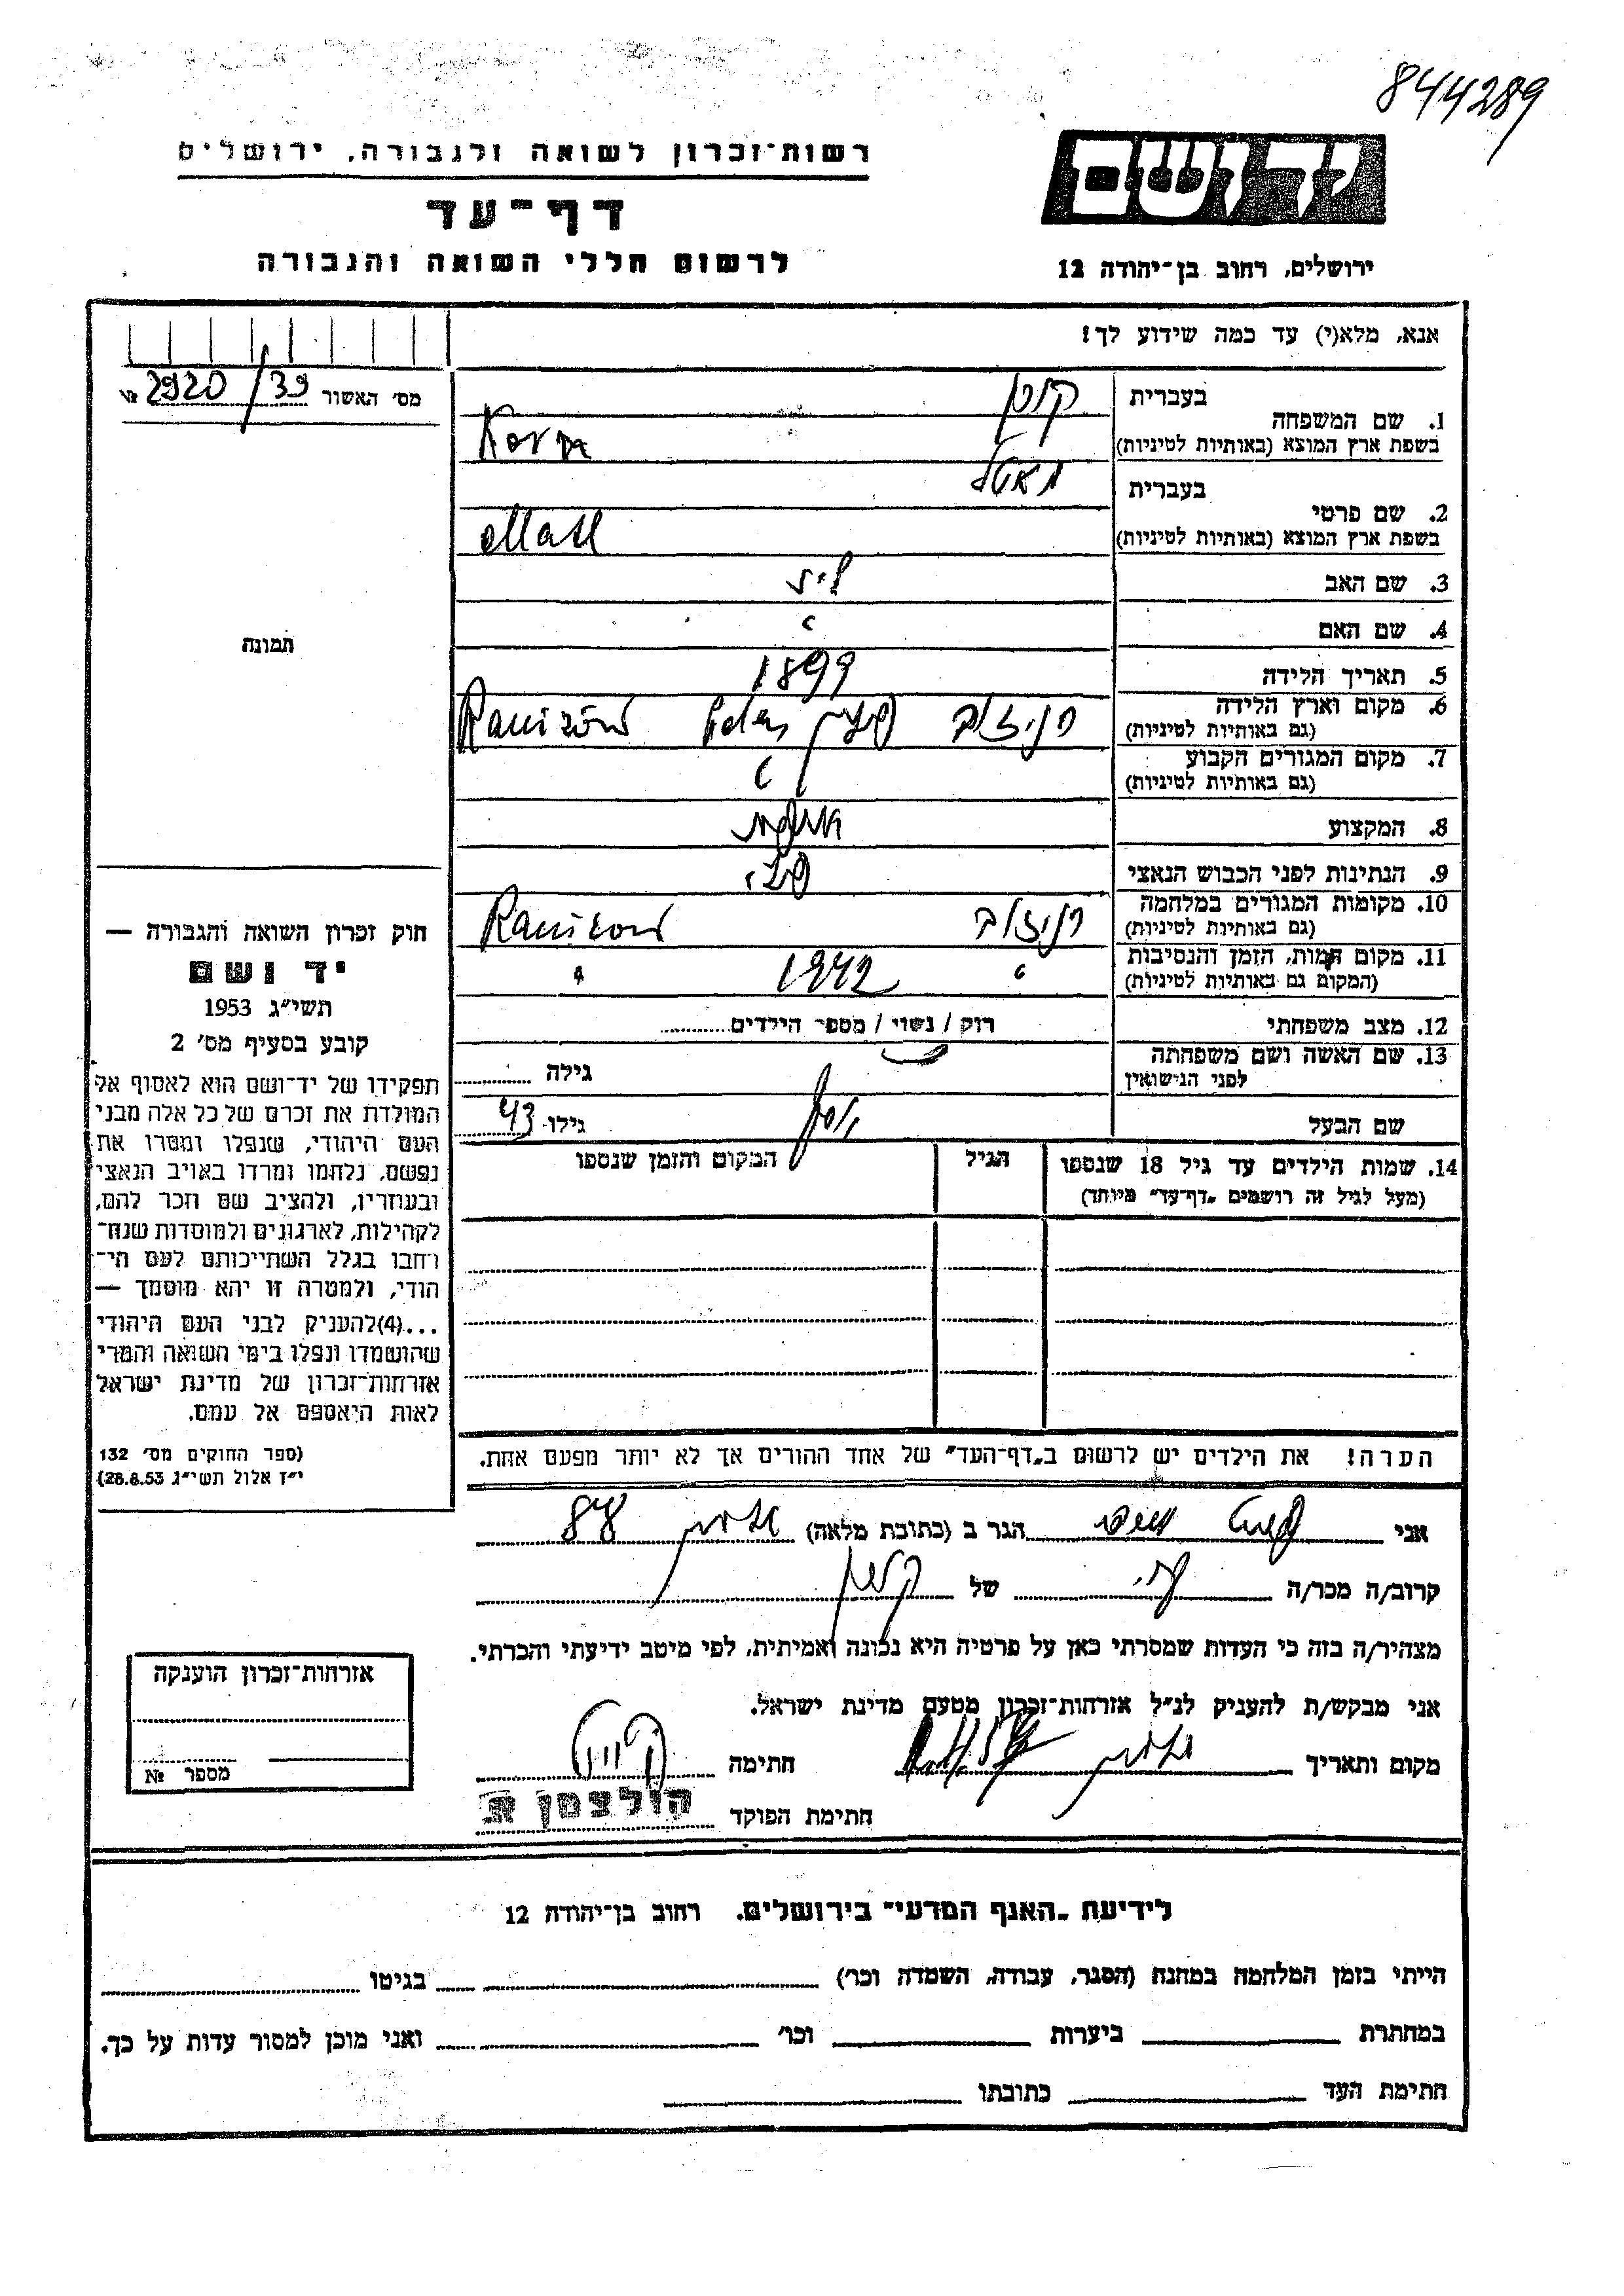 844289
יד ושם
רשות-זכרון לשואה ולגבורה, ירושלים
דף-עד
לרשום חללי השואה והגבורה
ירושלים, רחוב בן-יהודה 12
אנא, מלא(י) עד כמה שידוע לך!
מס׳ האשור 2920/39 №
תמונה
1. שם המשפחה
בעברית קורן
בשפת ארץ המוצא (באותיות לטיניות) Korn
2. שם פרטי
בעברית מאטל
בשפת ארץ המוצא (באותיות לטיניות)
3. שם האב
4. שם האם
5. תאריך הלידה 1899
6. מקום וארץ הלידה רניזוב פולין Raniżów
(גם באותיות לטיניות)
7. מקום המגורים הקבוע
(גם באותיות לטיניות)
8. המקצוע
9. הנתינות לפני הכבוש הנאצי
10. מקומות המגורים במלחמה רניזוב Ranizow
(גם באותיות לטיניות)
11. מקום המות, הזמן והנסיבות 1942
(המקום גם באותיות לטיניות)
12. מצב משפחתי רוק / נשוי / מספר הילדים
13. שם האשה ושם משפחתה גילה
לפני הנישואין
שם הבעל יוסף גילו 43
14. שמות הילדים עד גיל 18 שנספו הגיל המקום והזמן שנספו
(מעל לגיל זה רושמים „דף-עד״ מיוחד)
הערה! את הילדים יש לרשום ב„דף-העד״ של אחד ההורים אך לא יותר מפעם אחת.
חוק זכרון השואה והגבורה —
יד ושם
תשי״ג 1953
קובע בסעיף מס׳ 2
תפקידו של יד-ושם הוא לאסוף אל
המולדת את זכרם של כל אלה מבני
העם היהודי, שנפלו ומסרו את
נפשם, נלחמו ומרדו באויב הנאצי
ובעוזריו, ולהציב שם וזכר להם,
לקהילות, לארגונים ולמוסדות שנח-
רחבו בגלל השתייכותם לעם הי-
הודי, ולמטרה זו יהא מוסמך —
...(4)להעניק לבני העם היהודי
שהושמדו ונפלו בימי השואה והמרי
אזרחות-זכרון של מדינת ישראל
לאות היאספם אל עמם.
(ספר החוקים מס׳ 132
י״ז אלול תשי״ג 28.8.53)
אני הגר ב (כתובת מלאה) 88
קרוב/ה מכר/ה של
מצהיר/ה בזה כי העדות שמסרתי כאן על פרטיה היא נכונה ואמיתית, לפי מיטב ידיעתי והכרתי.
אני מבקש/ת להעניק לנ״ל אזרחות-זכרון מטעם מדינת ישראל.
מקום ותאריך חתימה
חתימת הפוקד הולצמן א
אזרחות-זכרון הוענקה
מספר №
לידיעת „האגף המדעי״ בירושלים, רחוב בן-יהודה 12
הייתי בזמן המלחמה במחנה (הסגר, עבודה, השמדה וכר׳) בגיטו
במחתרת ביערות וכר׳ ואני מוכן למסור עדות על כך.
חתימת העד כתובתו